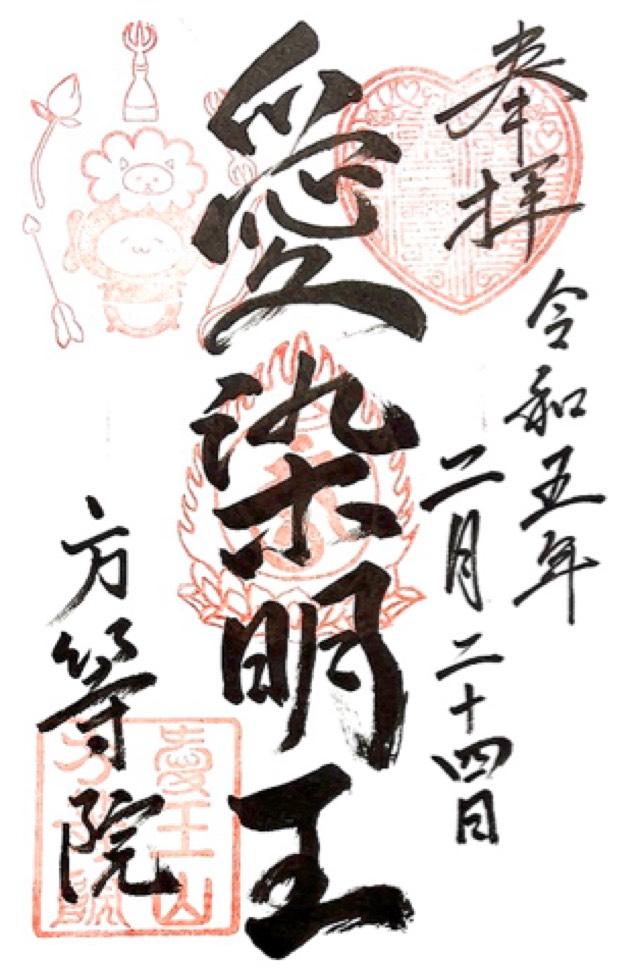 奉拝
令和五年
二月二十四日
愛染明王
方等院
愛王山